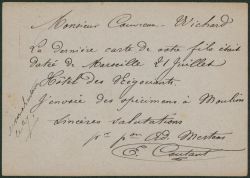 Monsieur Cauvreau-Wichard
La dernière carte de votre fils était
datée de Marseille 21 Juillet
Hôtel des Négociants
J'envoie des spécimens à Moulin
sincères salutations
pr pon Ad. Mertens
E. Coutant